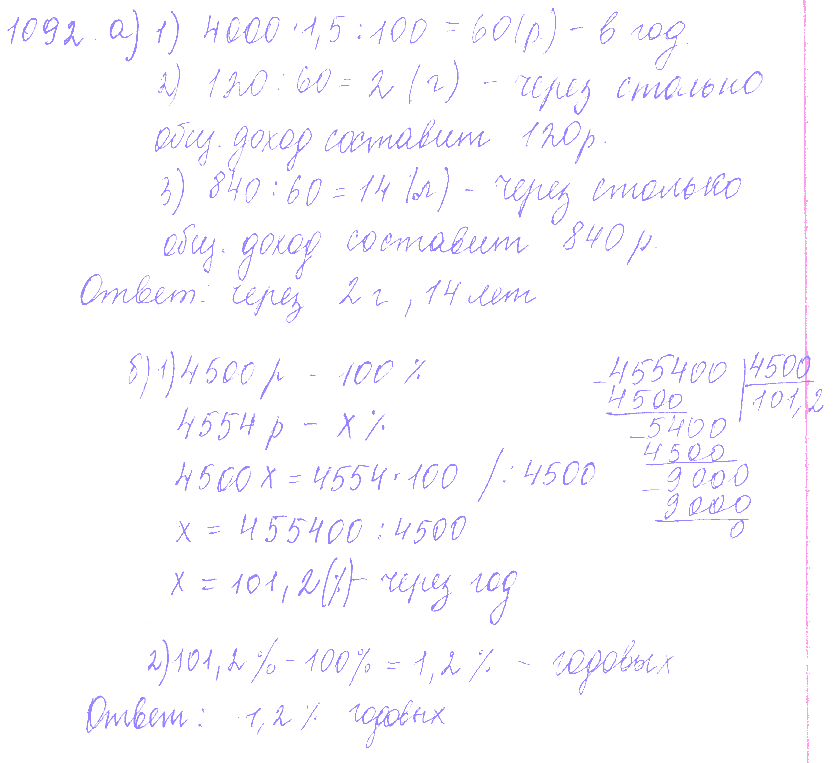 1092. а) 1) 4000 · 1,5 : 100 = 60 (р) – в год.
2) 120 : 60 = 2 (г) – через столько
общ. доход составит 120 р.
3) 840 : 60 = 14 (л) – через столько
общ. доход составит 840 р.
Ответ: через 2 г, 14 лет
б) 1) 4500 р – 100 %
4554 р – х %
4500 х = 4554 · 100 / : 4500
х = 455400 : 4500
х = 101,2 (%) – через год
– 455400 | 4500
4500 101,2
– 5400
4500
– 9000
9000
0
2) 101,2 % – 100 % = 1,2 % – годовых
Ответ: 1,2 % годовых